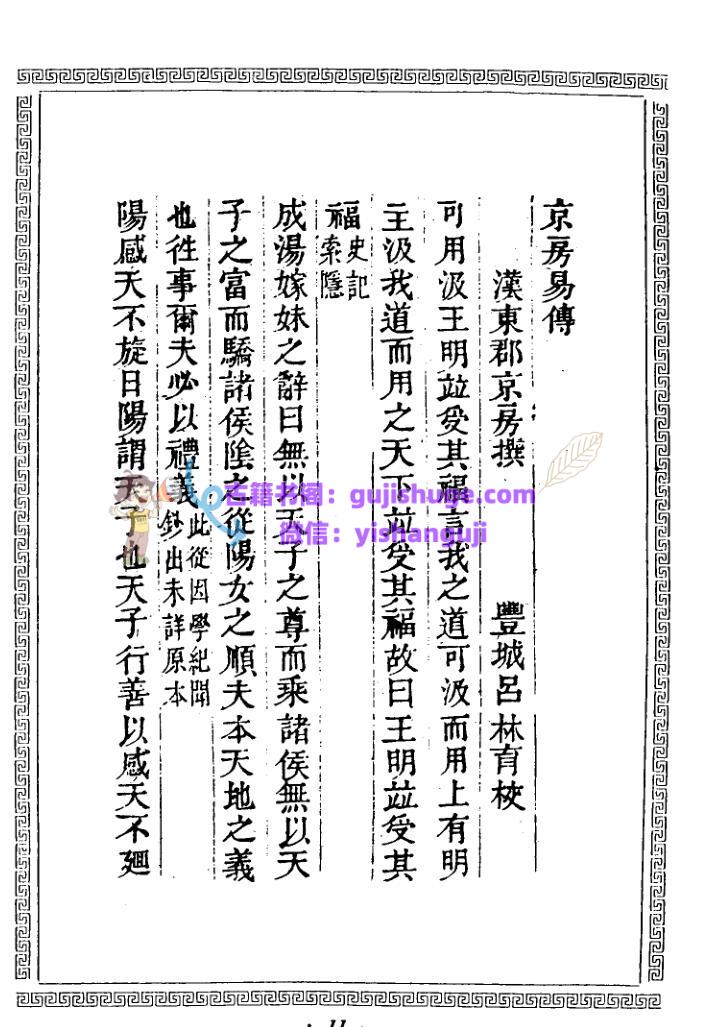 京房易傳
漢東郡京房撰 豐城呂林育校
可用汲王明竝受其福言我之道可汲而用上有明
主汲我道而用之天下竝受其福故曰王明竝受其
福史記索隱
成湯嫁妹之辭曰無以天子之尊而乘諸侯無以天
子之富而驕諸侯陰之從陽女之順夫本天地之義
也徃事爾夫必以禮義此從困學紀聞鈔出未詳原本
陽感天不旋日陽謂天子也天子行善以感天不廻
古籍书阁：gujishuge.com
微信：yishanguji
11